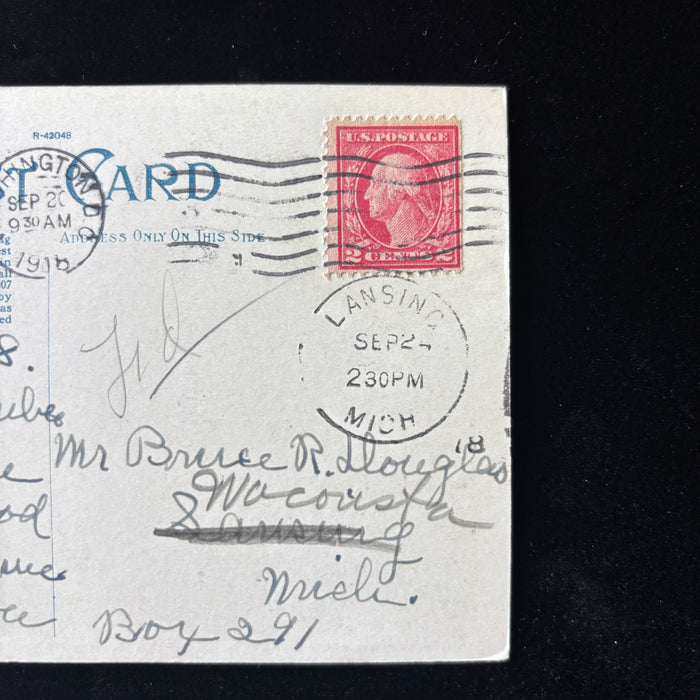 R-42048
T CARD
HINGTON D.C.
SEP 20
9 30 AM
1918
ADDRESS ONLY ON THIS SIDE
U.S. POSTAGE
2 CENTS 2
LANSING
SEP 24
2 30 PM
MICH
18
est
in
all
07
by
as
ed
8.
Mr Bruce R. Douglas
Wacousta
Lansing
Mich.
Box 291